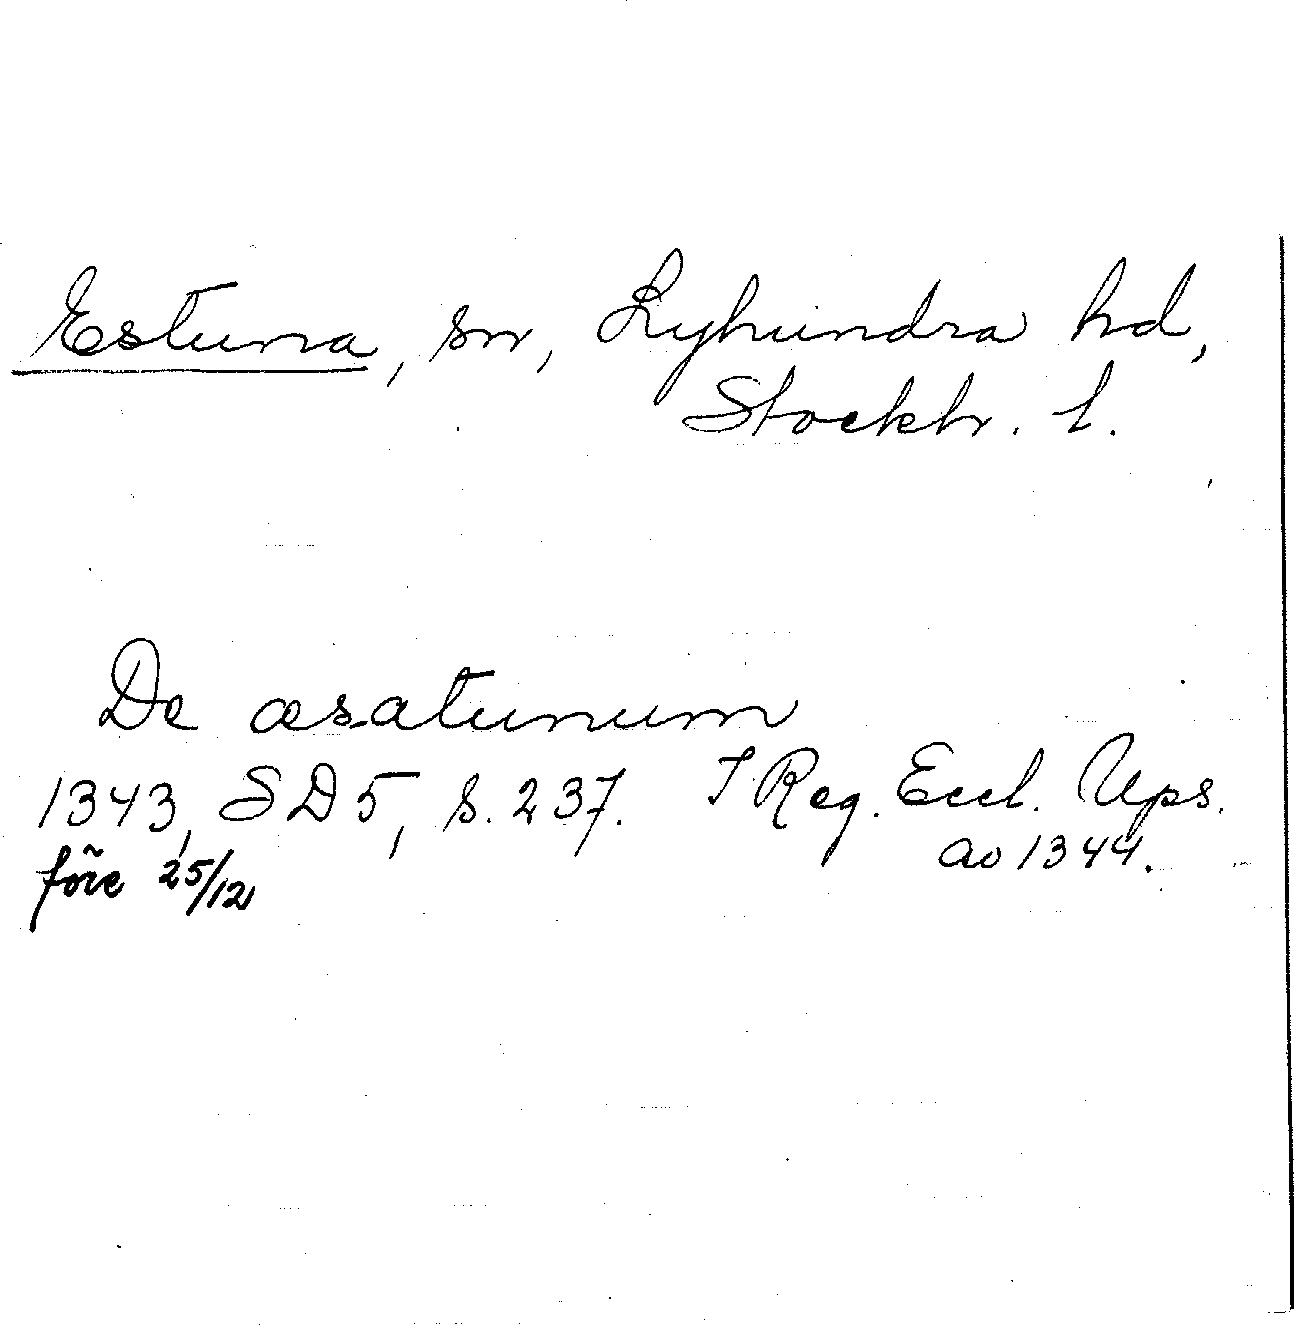 Estuna, sn, Lyhundra hd,
Stockh. l.
De æsatunum
1343, SD 5, s. 237. I Reg. Eccl. Ups.
före 25/12
ao 1344.